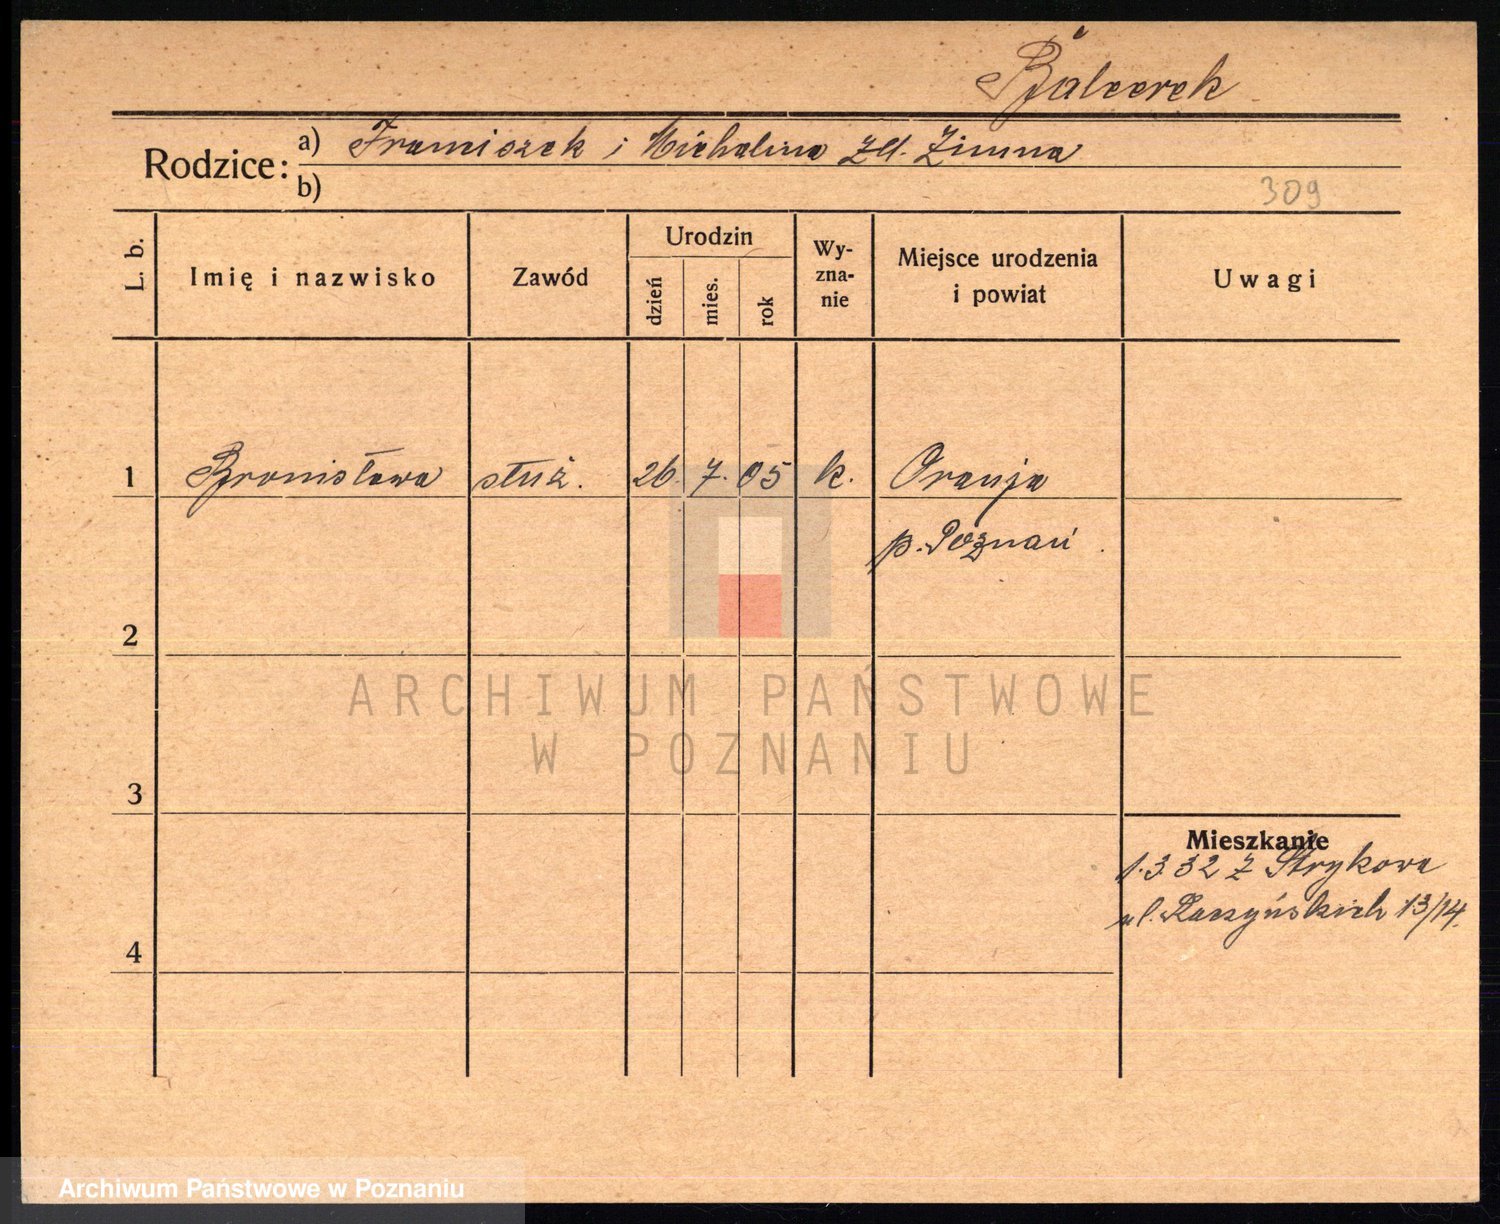 Balcerek
Rodzice: a) Franciszek i Michalina Zd. Zimna
b)
309
L. b. Imię i nazwisko Zawód Urodzin dzień mies. rok Wy-zna-nie Miejsce urodzenia i powiat Uwagi
1 Bronisława służ. 26. 7. 05 k. Oranja
p. Poznań
2
ARCHIWUM PAŃSTWOWE
W POZNANIU
3
Mieszkanie
1.3.32 z Strykowa
ul. Raczyńskich 13/14.
4
Archiwum Państwowe w Poznaniu